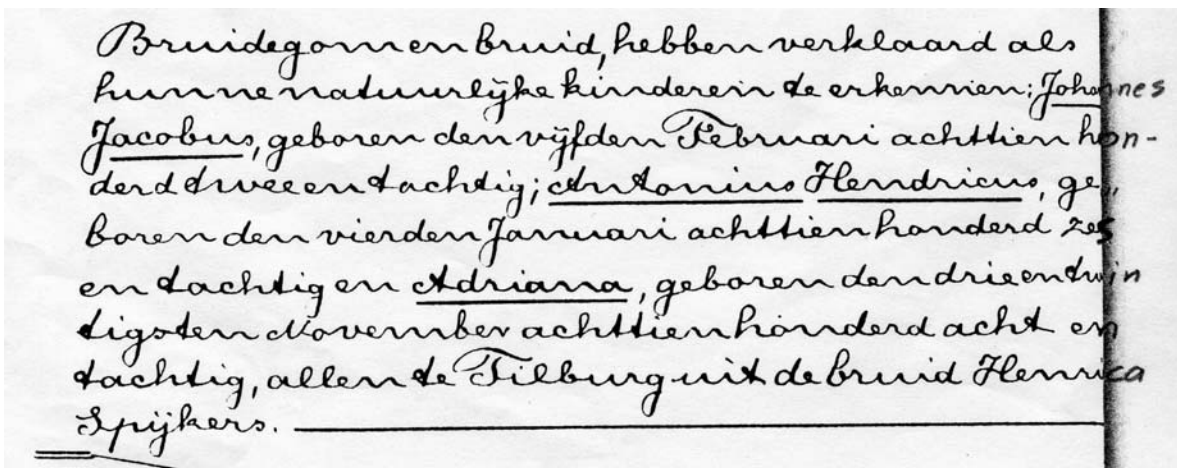 Bruidegom en bruid, hebben verklaard als
hunne natuurlijke kinderen te erkennen: Johannes
Jacobus, geboren den vijfden Februari achttien hon-
derd twee en tachtig; Antonius Hendricus, ge„
boren den vierden Januari achttien honderd zes
en tachtig en Adriana, geboren den drie en twin
tigsten November achttien honderd acht en
tachtig, allen te Tilburg uit de bruid Henrica
Spijkers.